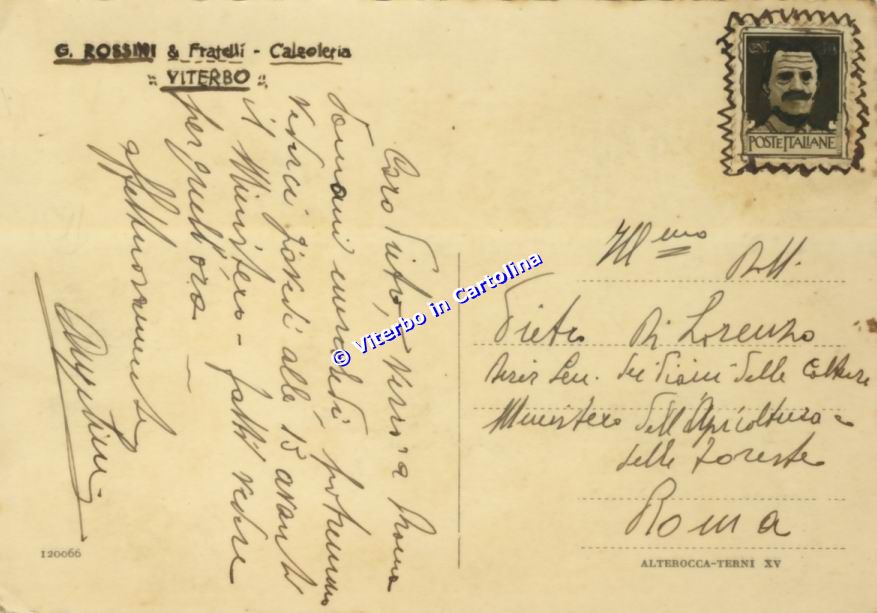 G. ROSSINI & Fratelli - Calzoleria
" VITERBO "
CENT. 30
POSTE ITALIANE
Caro Pietro, Verrò a Roma
domani mercoledì, potremmo
vederci giovedì alle 15 avanti
il Ministero - fatti vedere
per quell'ora —
affettuosamente
© Viterbo in Cartolina
Ill mo
Dott.
Pietro Di Lorenzo
Gen. dei Piani delle Colture
Ministero dell'Agricoltura e
delle Foreste
Roma
120066
ALTEROCCA-TERNI XV